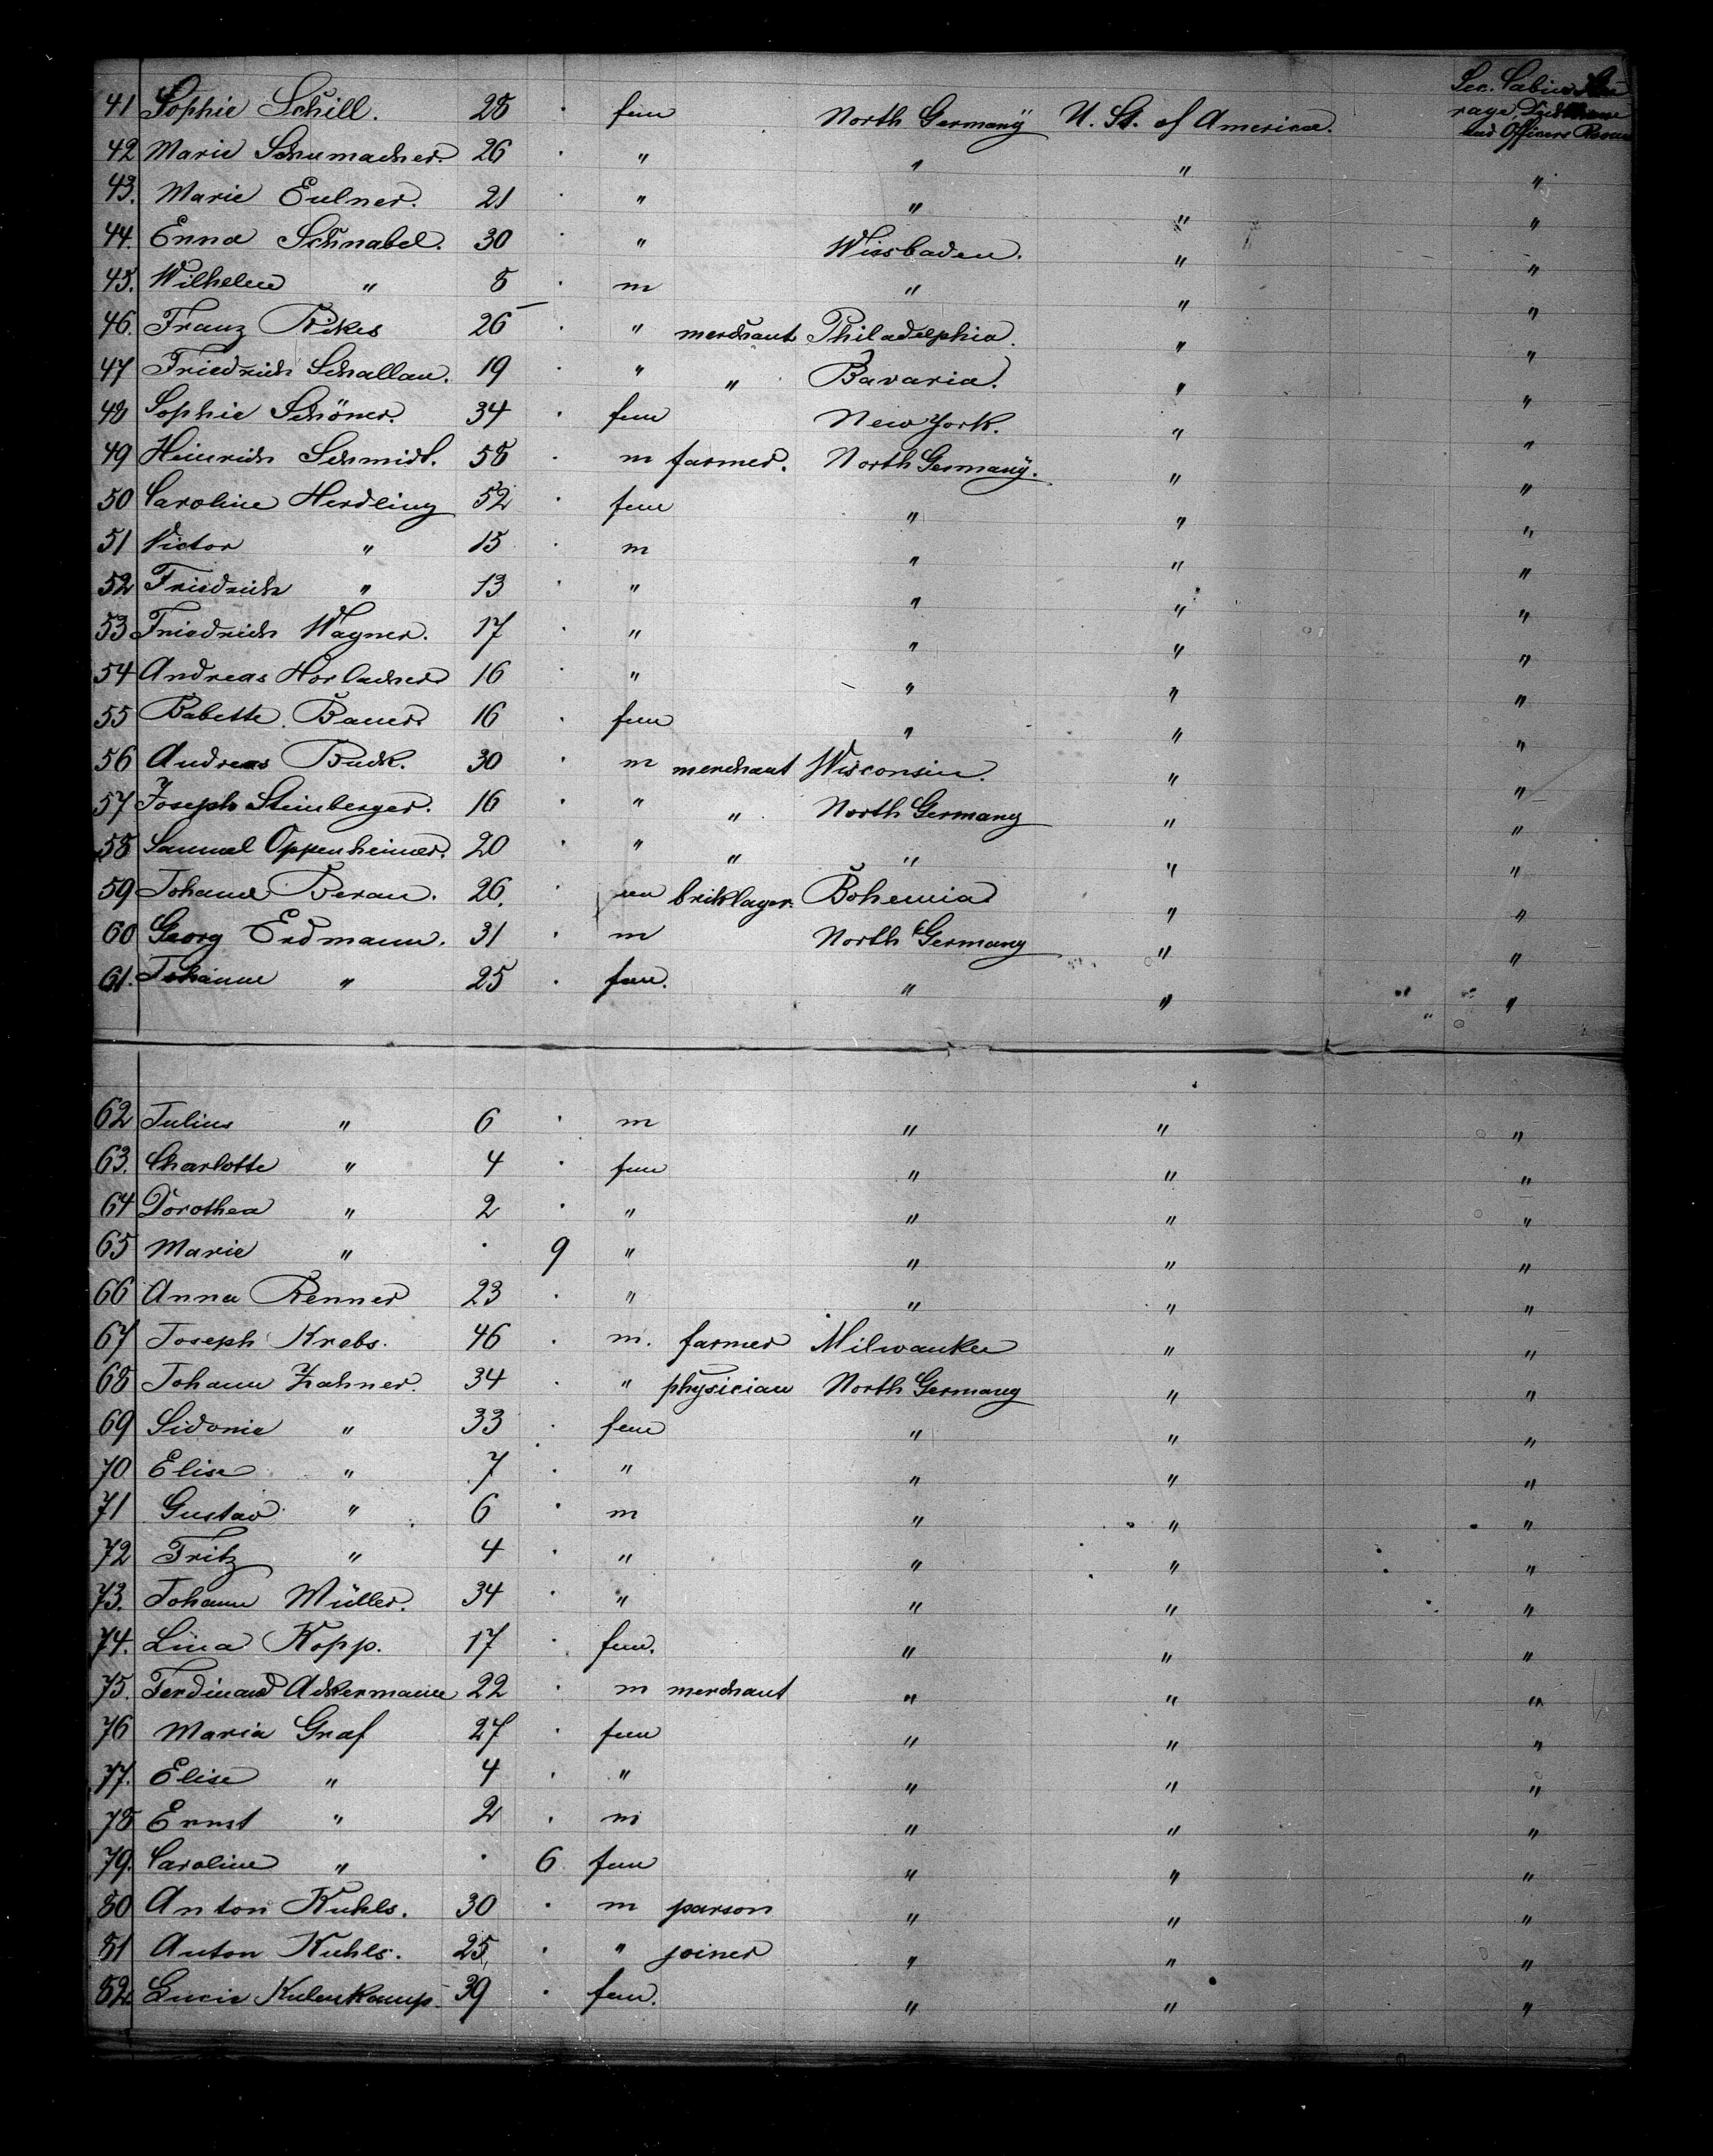 41 Sophie Schill. 28 · fem North Germany U. St. of America. Sec. Cabin
and Officers Rooms
42 Marie Schumacher. 26 " " " "
43. Marie Eulner. 21 · " " " "
44. Enna Schnabel. 30 · " Wissbaden. " "
45. Wilhelm " 8 · m " " "
46. Franz 26 · " merchant Philadelphia. " "
47 Friedrich Schallau. 19 · " " Bavaria. " "
48 Sophie Schöner. 34 · fem New York. " "
49 Heinrich Schmidt. 58 · m farmer. North Germany. " "
50 Caroline Herdling 52 · fem " " "
51 Victor " 15 · m " " "
52 Friedrich " 13 · " " " "
53 Friedrich Wagner. 17 · " " " "
54 Andreas Horlacher 16 · " " " "
55 Babette Bauer. 16 · fem " " "
56 Andreas Buck. 30 · m merchant Wisconsin. " "
57 Joseph Steinberger. 16 · " " North Germany " "
58 Samuel Oppenheimer. 20 · " " " " "
59 Johann Beran. 26. · m briklager. Bohemia " "
60 Georg Erdmann. 31 · m North Germany " "
61. Johanne " 25 · fem. " " "
62 Julius " 6 · m " " "
63. Charlotte " 4 · fem " " "
64 Dorothea " 2 · " " " "
65 Marie " · 9 " " " "
66 Anna Renner 23 · " " " "
67 Joseph Krebs. 46 · m. farmer Milwaukee " "
68 Johann Zahner. 34 · " physician North Germany " "
69 Sidonie " 33 · fem " " "
70 Elise " 7 · " " " "
71 Gustav " 6 · m " " "
72 Fritz " 4 · " " " "
73. Johann Müller. 34 · " " " "
74. Lina Kopp. 17 · fem. " " "
75. Ferdinand Ackermann 22 · m merchant " " "
76 Maria Graf 27 · fem " " "
77. Elise " 4 · " " " "
78 Ernst " 2 · m " " "
79. Caroline " · 6 fem " " "
80 Anton Kuhls. 30 · m parson " " "
81 Anton Kuhls. 25 · " joiner " " "
82. Lucie Kulenkamp. 39 · fem. " " "